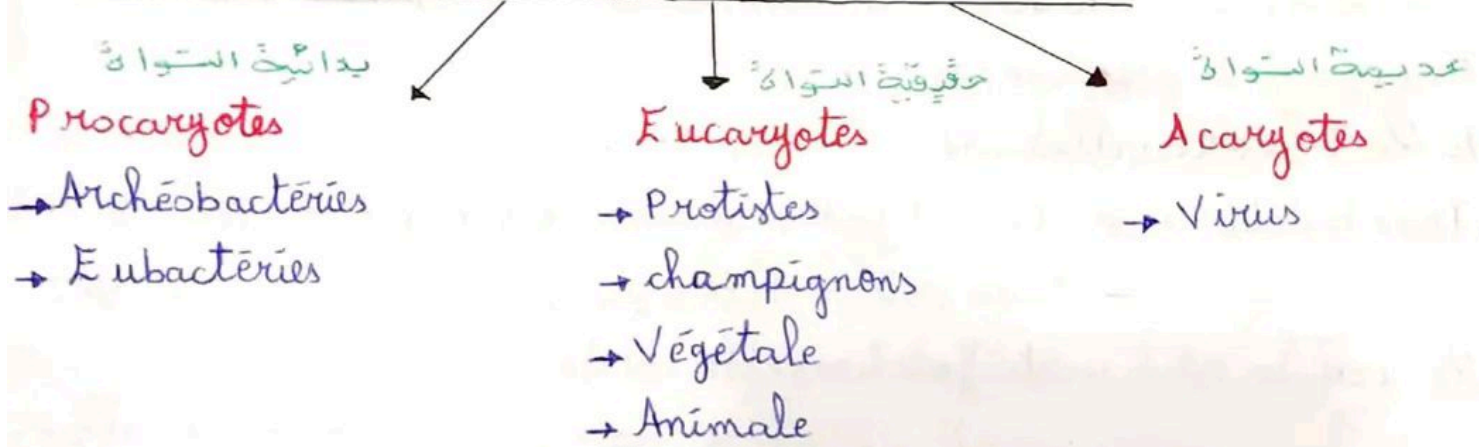 بدائية النواة
Procaryotes
→ Archéobactéries
→ Eubactéries
حقيقية النواة
Eucaryotes
→ Protistes
→ champignons
→ Végétale
→ Animale
عديمة النواة
Acaryotes
→ Virus